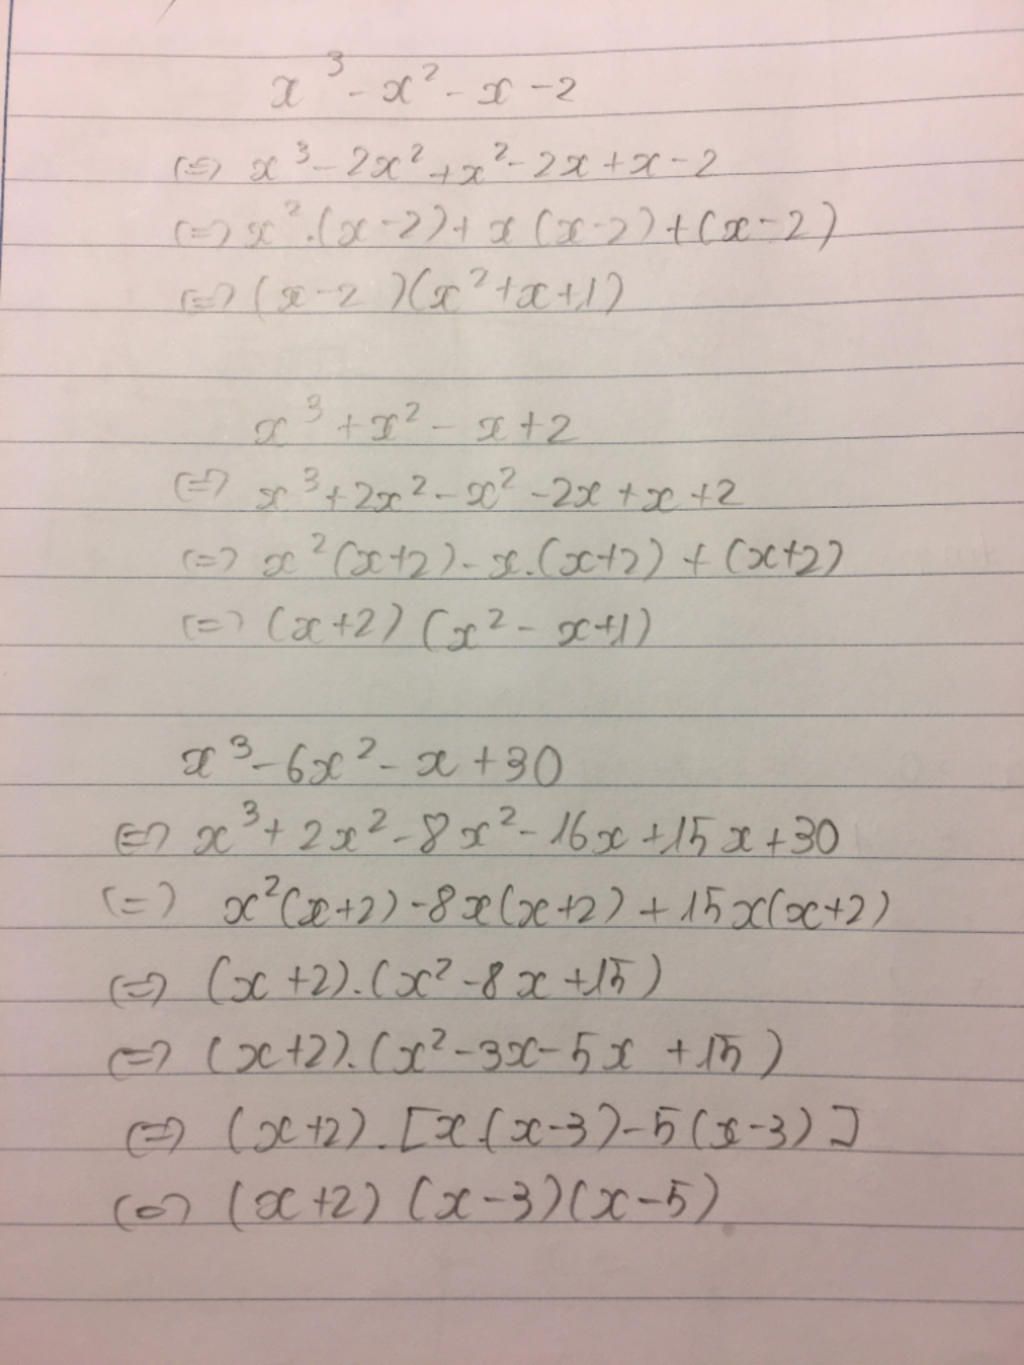 x³ - x² - x - 2
(=) x³ - 2x² + x² - 2x + x - 2
(=) x².(x-2) + x(x-2) + (x-2)
(=) (x-2)(x²+x+1)
x³ + x² - x + 2
(=) x³ + 2x² - x² - 2x + x + 2
(=) x²(x+2) - x.(x+2) + (x+2)
(=) (x+2)(x² - x+1)
x³ - 6x² - x + 30
(=) x³ + 2x² - 8x² - 16x + 15x + 30
(=) x²(x+2) - 8x(x+2) + 15x(x+2)
(=) (x+2).(x² - 8x + 15)
(=) (x+2).(x² - 3x - 5x + 15)
(=) (x+2).[x.(x-3) - 5(x-3)]
(=) (x+2)(x-3)(x-5)